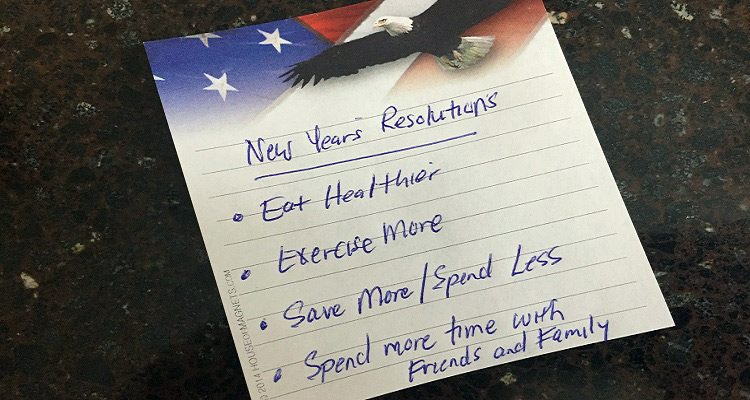 New Year's Resolutions
• Eat Healthier
• Exercise More
• Save More/Spend Less
• Spend more time with
Friends and Family
© 2014 HOUSEOFMAGNETS.COM